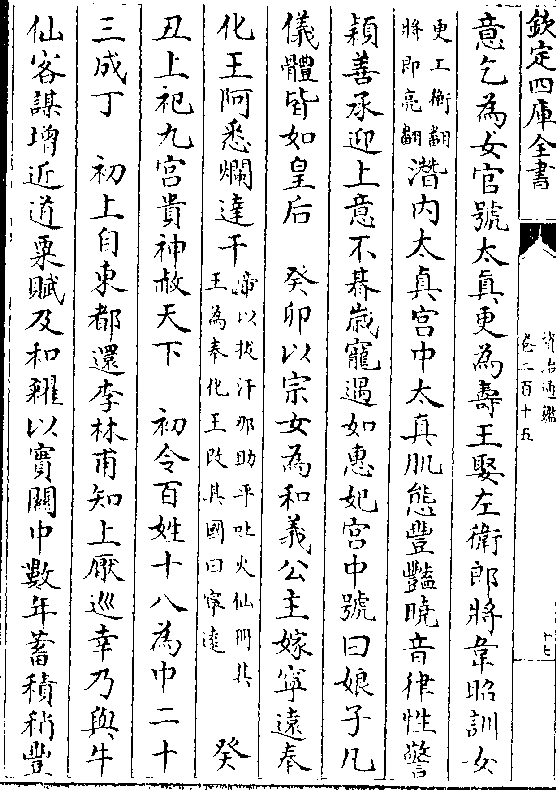 欽定四庫全書
資治通鑑
卷二百十五
十七
意乞為女官號太真更為壽王娶左衛郎將韋昭訓女
更工衡翻
將即亮翻
潛内太真宫中太真肌態豐豔曉音律性警
穎善承迎上意不朞歲寵遇如惠妃宫中號曰娘子凡
儀體皆如皇后　癸卯以宗女為和義公主嫁寧遠奉
化王阿悉爛達干
帝以拔汗那助平吐火仙冊其
王為奉化王改其國曰寧遠
癸
丑上祀九宫貴神赦天下　初令百姓十八為中二十
三成丁　初上自東都還李林甫知上厭巡幸乃與牛
仙客謀增近道粟賦及和糴以實關中數年蓄積稍豐